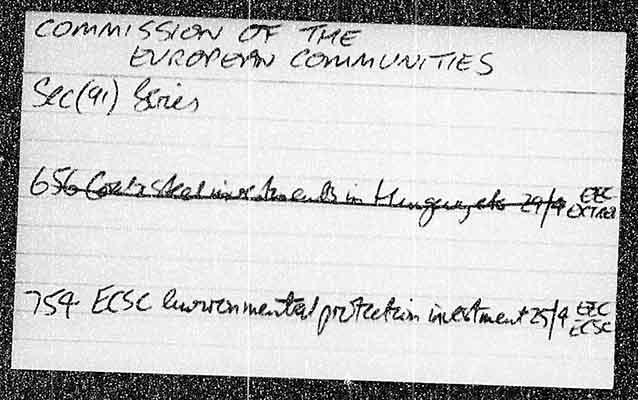 COMMISSION OF THE
EUROPEAN COMMUNITIES
Sec(91) Series
656 Coal & steel investments in Hungary, etc 29/4 EEC
EXTREL
754. ECSC Environmental protection investment 25/4 EEC
ECSC